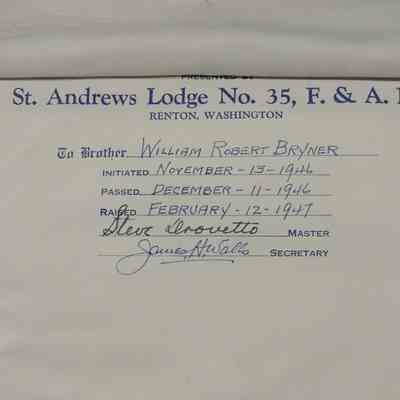 PRESENTED BY
St. Andrews Lodge No. 35, F. & A.
RENTON, WASHINGTON
To Brother William Robert Bryner
INITIATED November-13-1946
PASSED December-11-1946
RAISED February-12-1947
Steve Drovetto MASTER
James H. Walls SECRETARY